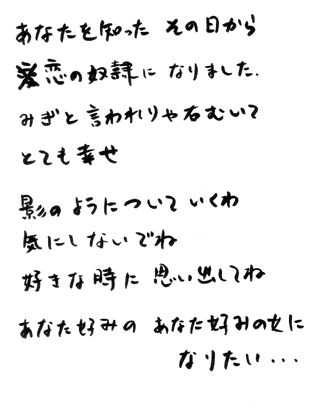 あなたを知った その日から
恋の奴隷に なりました.
みぎと言われりゃ右むいて
とても幸せ
影のようについていくわ
気にしないでね
好きな時に 思い出してね
あなた好みの あなた好みの女に
なりたい...